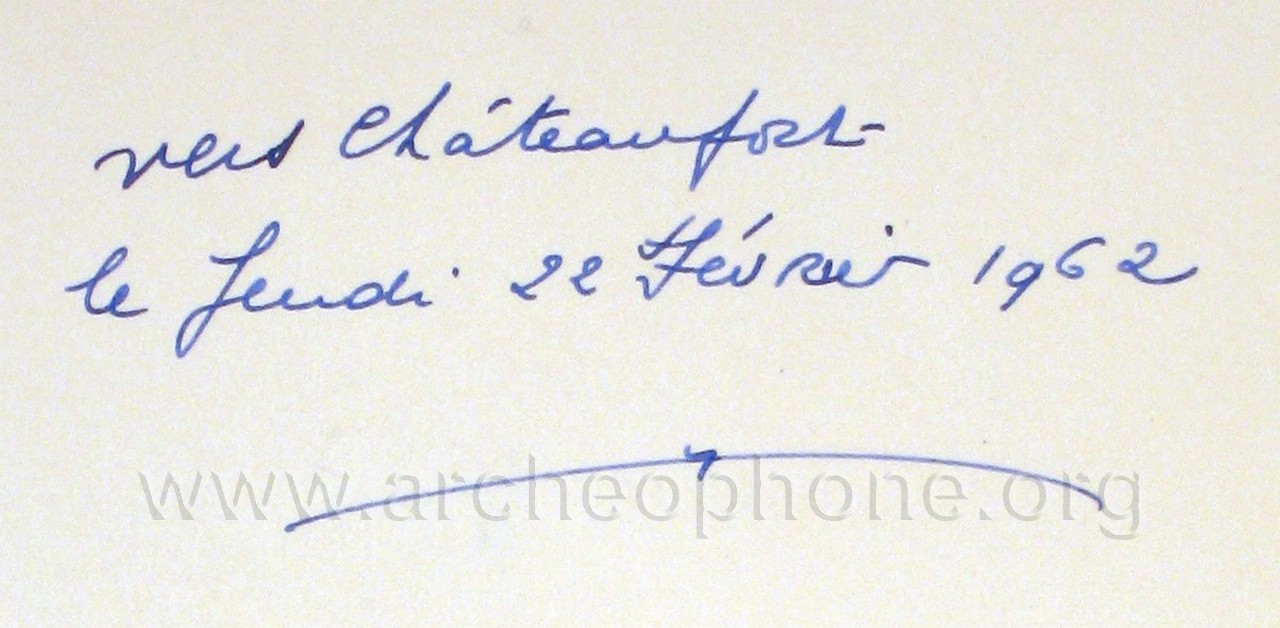 vers Châteaufort
le Jeudi 22 Février 1962
www.archeophone.org